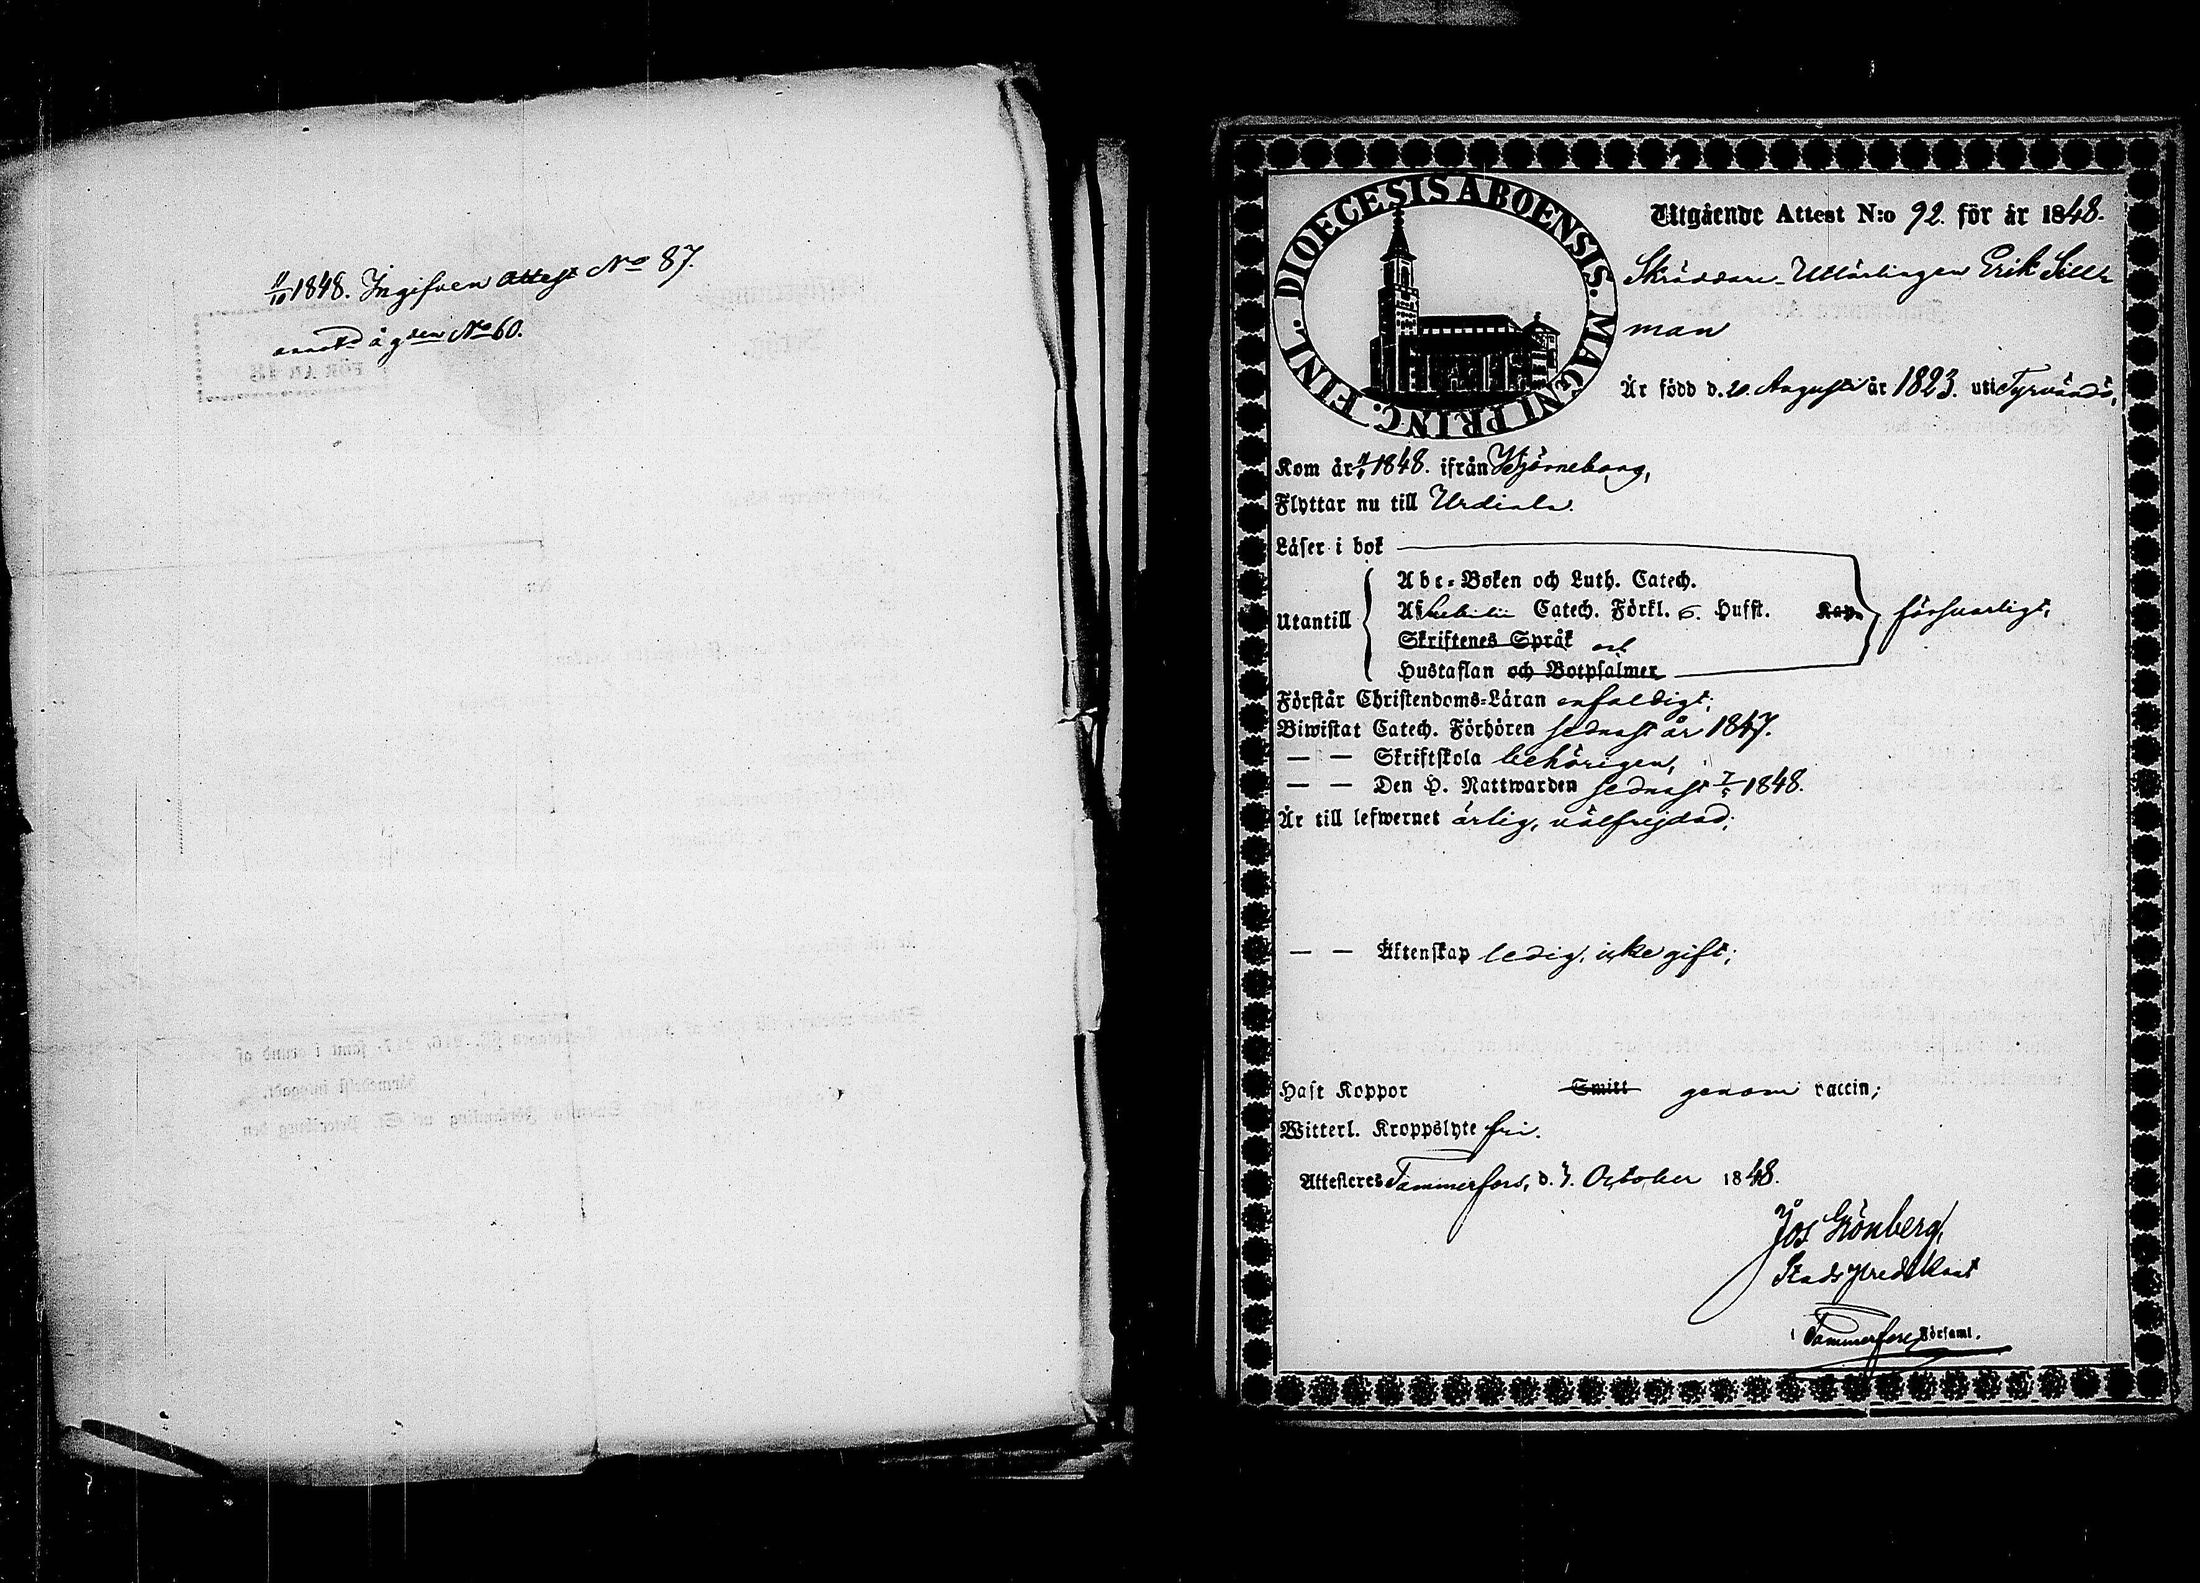 11/10 1848. Ingifven Attest No 87.
annot:d å g:den No 60.
DIOECESIS ABOENSIS. MAGNI PRINC. FINL.
Utgående Attest N:o 92. för år 1848.
Skräddare-Utlärlingen Erik Sill-
man
Är född d. 20. Augusti år 1823. uti Tyrvändö,
Kom år 1848. ifrån Björneborg,
Flyttar nu till Urdiala.
Läser i bok
Utantill
Abc-Boken och Luth. Catech.
Af Sebelii Catech. Förkl. o. Hufst. Kap.
Skriftenes Språk och
Hustaflan och Botpsalmer
försvarligt,
Förstår Christendoms-Läran enfaldigt;
Biwistat Catech. Förhören sednast år 1847.
— — Skriftskola behörigen,
— — Den H. Nattwarden sednast 7/5 1848.
Är till lefwernet ärlig, välfrejdad;
— — Äktenskap ledig, icke gift;
Haft Koppor Smitt genom vaccin;
Witterl. Kroppslyte fri.
Attesteres Tammerfors, d. 7. October 1848.
Jos Grönberg,
Stads Predikant
i Tammerfors Församl.